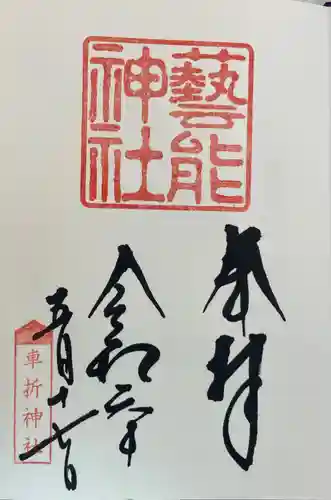 藝能
神社
奉拝
令和六年
五月十七日
車折神社